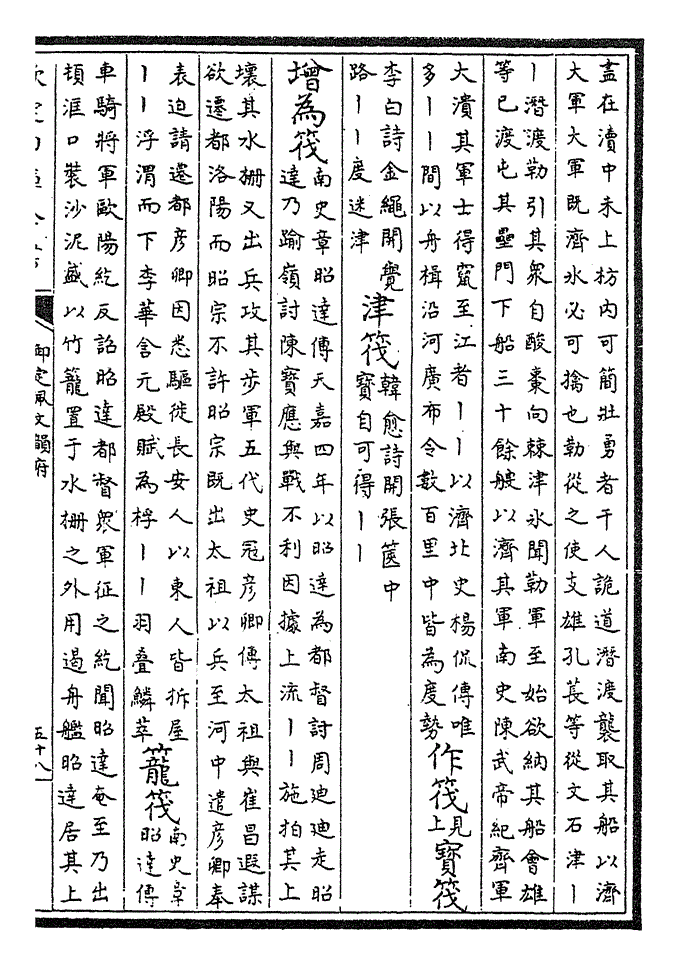 盡在瀆中未上枋內可簡壯勇者千人詭道潛渡襲取其船以濟
大軍大軍既濟氷必可擒也勒從之使支雄孔萇等從文石津丨
丨潛渡勒引其衆自酸棗向棘津氷聞勒軍至始欲納其船會雄
等已渡屯其壘門下船三十餘艘以濟其軍南史陳武帝紀齊軍
大潰其軍士得竄至江者丨丨以濟北史楊侃傳唯
多丨丨間以舟楫沿河廣布令數百里中皆為度勢
作筏
見上
寳筏
李白詩金繩開覺
路丨丨度迷津
津筏
韓愈詩開張篋中
寳自可得丨丨
增為筏
南史章昭達傳天嘉四年以昭達為都督討周迪迪走昭
達乃踰嶺討陳寳應與戰不利因據上流丨丨施拍其上
壞其水柵又出兵攻其步軍五代史冦彦卿傳太祖與崔昌遐謀
欲遷都洛陽而昭宗不許昭宗既出太祖以兵至河中遣彦卿奉
表迫請遷都彦卿因悉驅徙長安人以東人皆拆屋
丨丨浮渭而下李華含元殿賦為桴丨丨羽叠鱗萃
籠筏
南史章
昭達傳
車騎將軍歐陽紇反詔昭達都督衆軍征之紇聞昭達奄至乃出
頓洭口裝沙泥盛以竹籠置于水柵之外用遏舟艦昭達居其上
御定佩文韻府
五十八